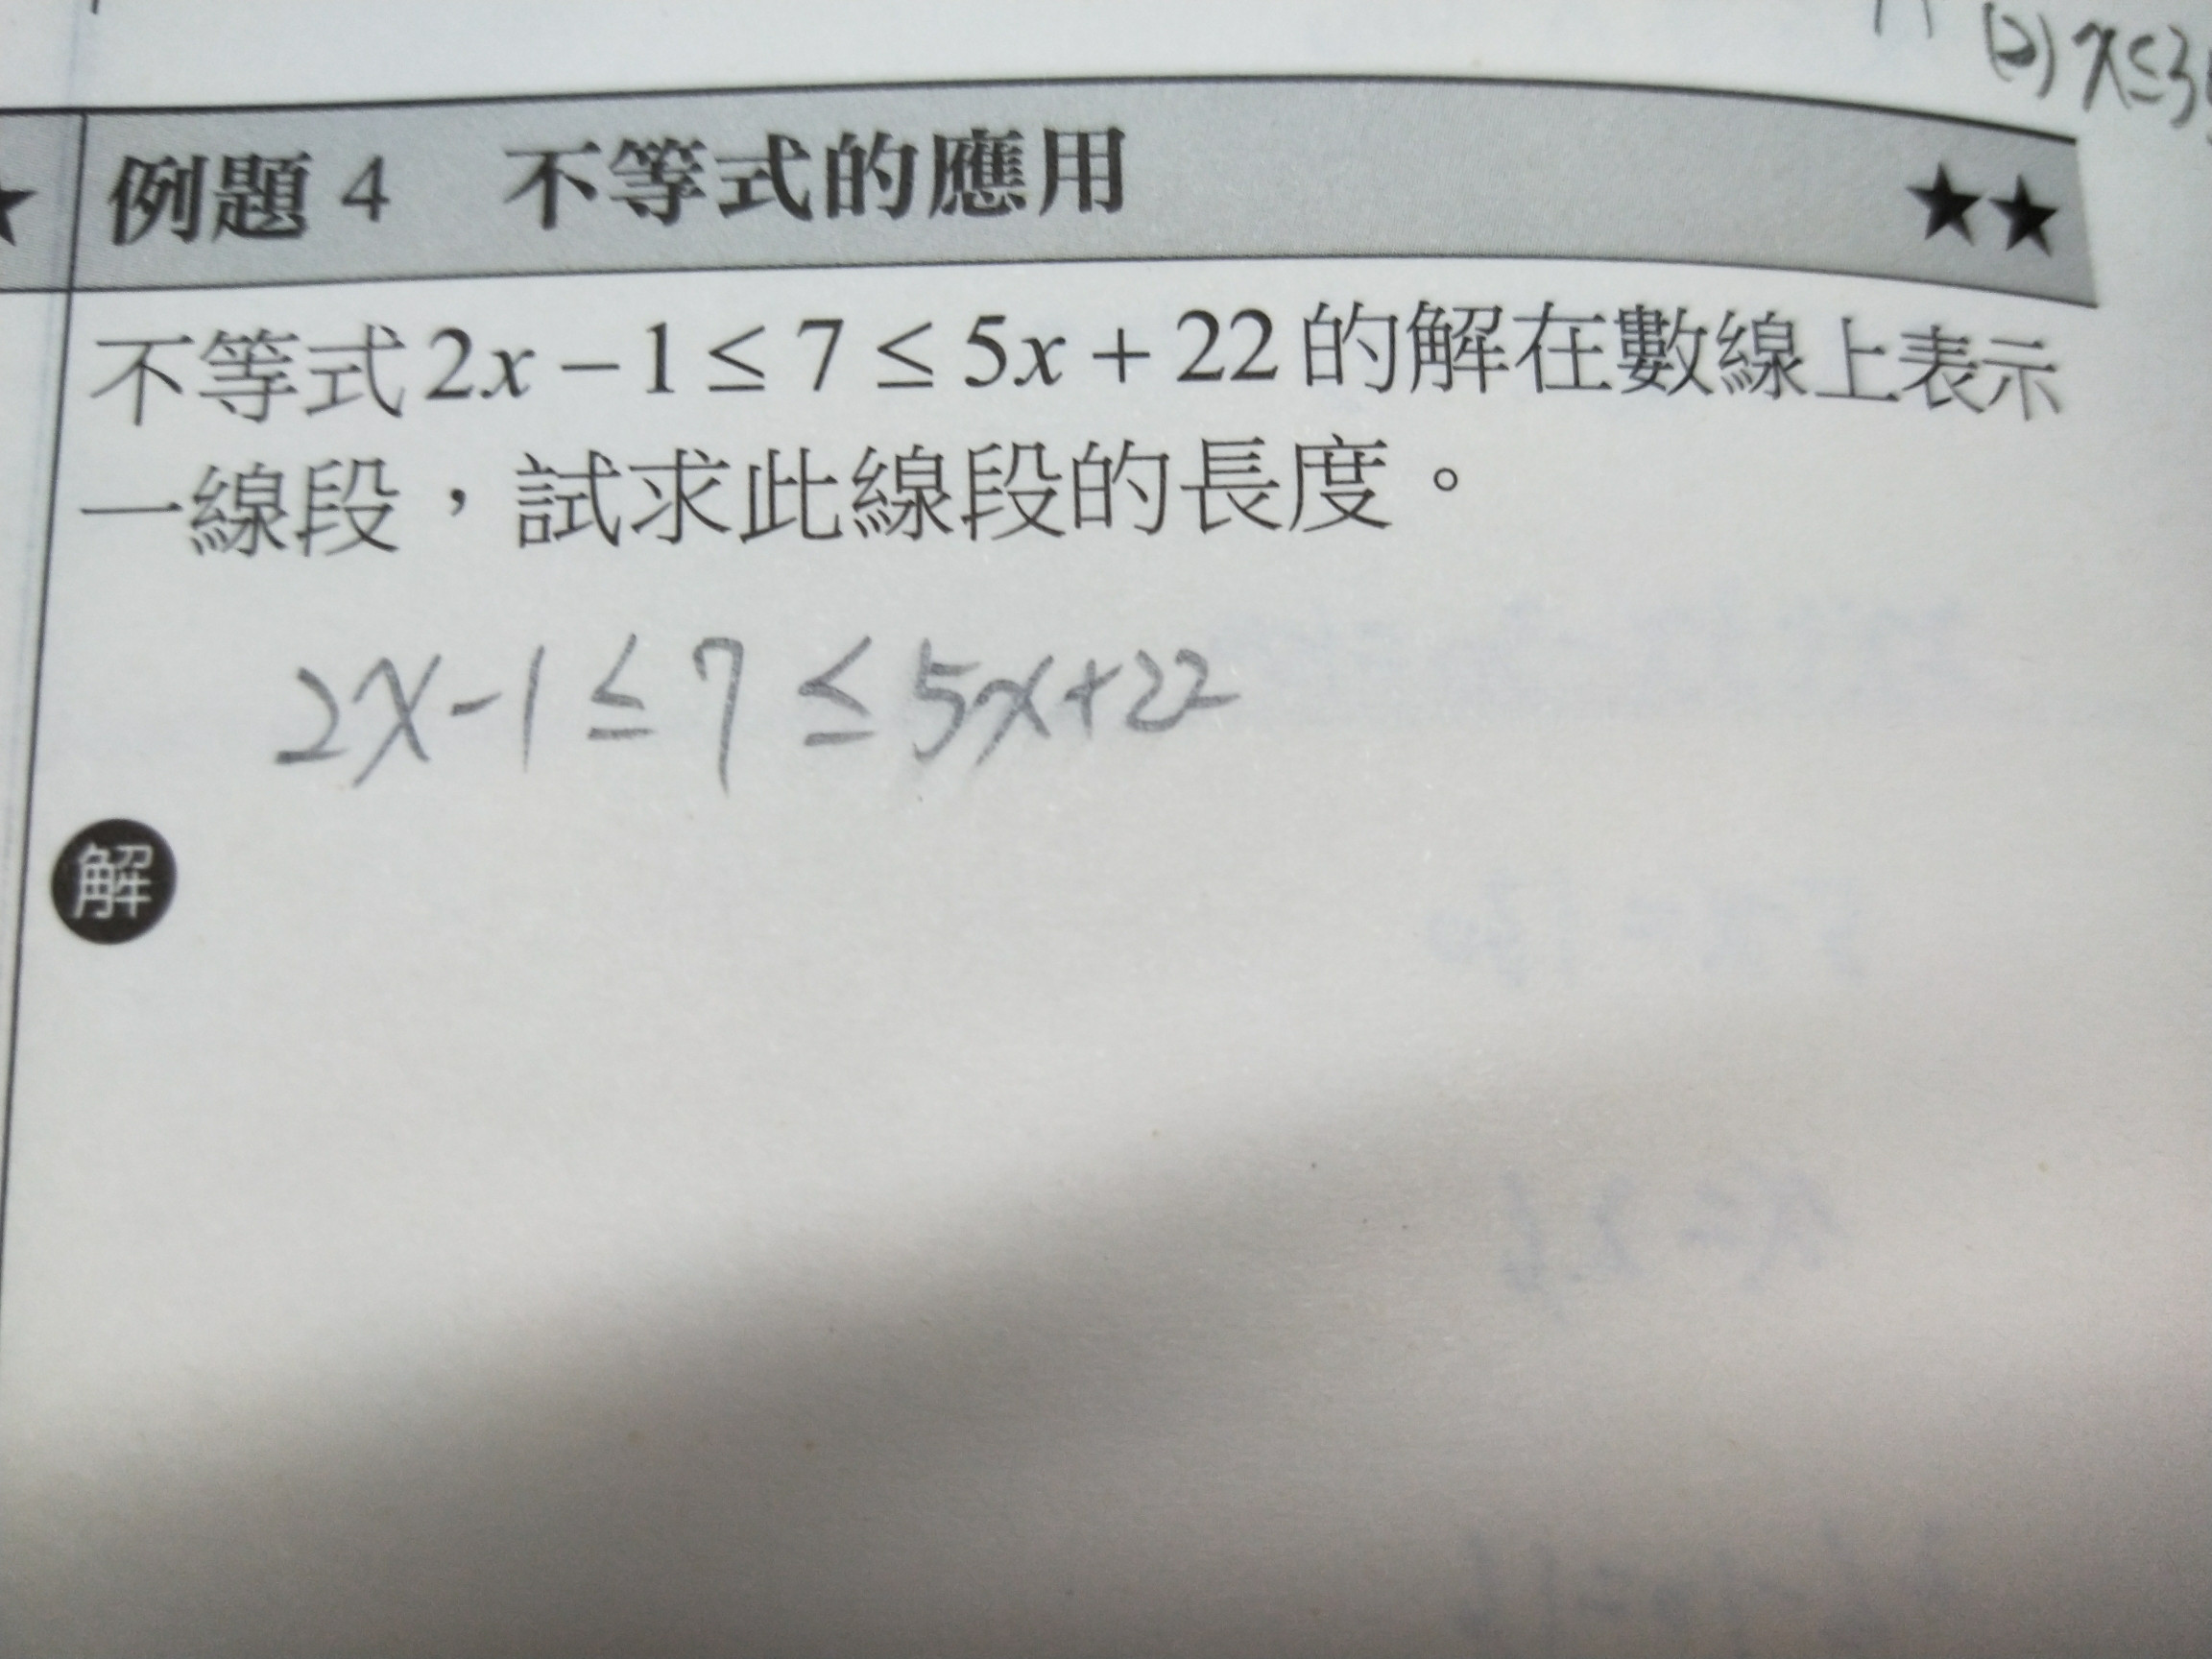 (2) x≤3
例題 4 不等式的應用 ★★
不等式 2x − 1 ≤ 7 ≤ 5x + 22 的解在數線上表示
一線段，試求此線段的長度。
2x-1 ≤ 7 ≤ 5x+22
解